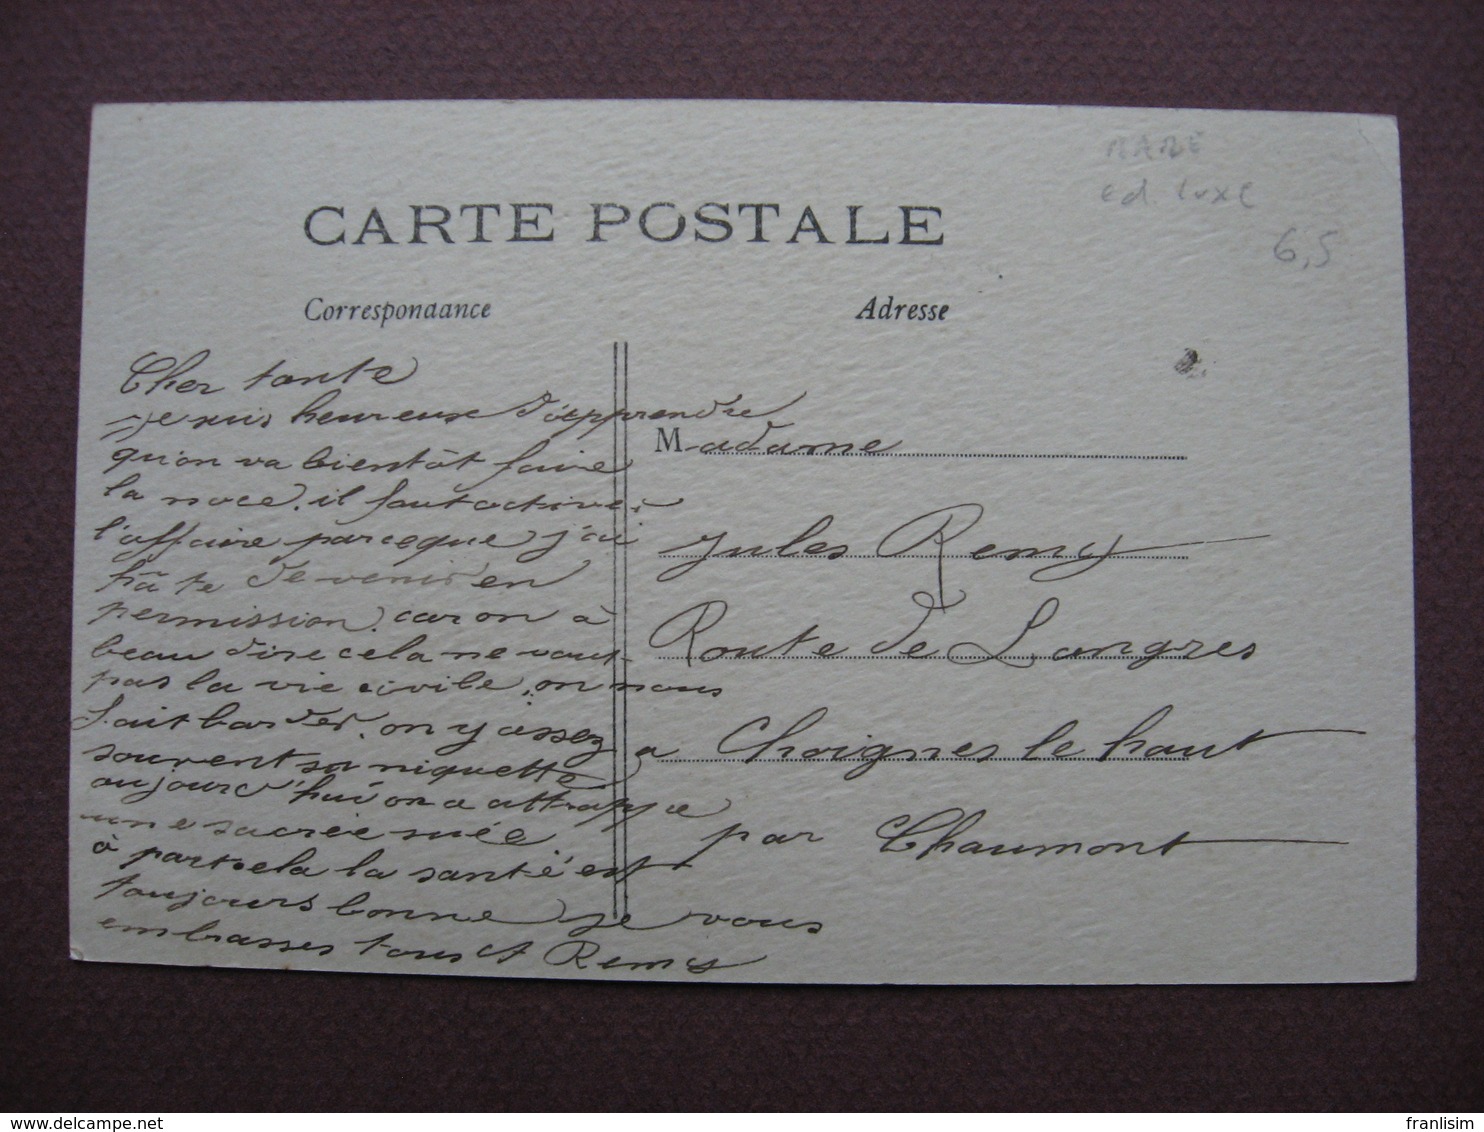 RARE
ed. luxe
6,5
CARTE POSTALE
Correspondance
Adresse
Cher tante
je suis heureux d'apprendre
qu'on va bientôt faire
la noce. il faut activer
l'affaire parceque j'ai
hâte de venir en
permission. car on à
beau dire cela ne vaut
pas la vie civile, on nous
fait barder, on y assez
souvent sa niquette
aujourd'hui on a attrappe
une sacrée suée
à part cela la santé est
toujours bonne je vous
embrasses tous Remy
Madame
Jules Remy
Route de Langres
a Choignes le haut
par Chaumont
franlisim